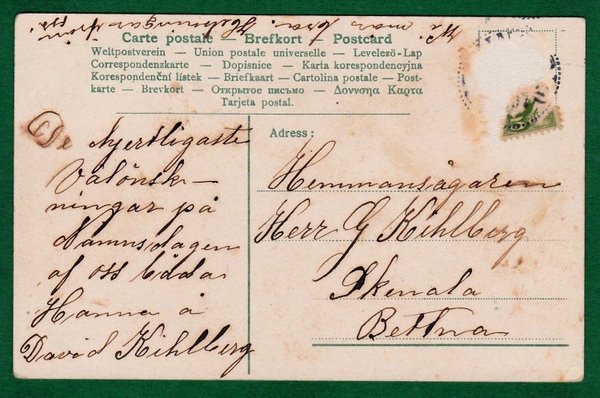 Carte postale — Brefkort — Postcard
Weltpostverein — Union postale universelle — Levelező-Lap
Correspondenzkarte — Dopisnice — Karta korespondencyjna
Korespondenční lístek — Briefkaart — Cartolina postale — Post-
karte — Brevkort — Открытое письмо — Δοννσηα Καρτα
Tarjeta postal.
Hjertligaste
Välönsk-
ningar på
Namnsdagen
af oss båda
Hanna å
David Kihlberg
Adress:
Hemmansägaren
Herr G Kihlberg
Skenala
Bettna